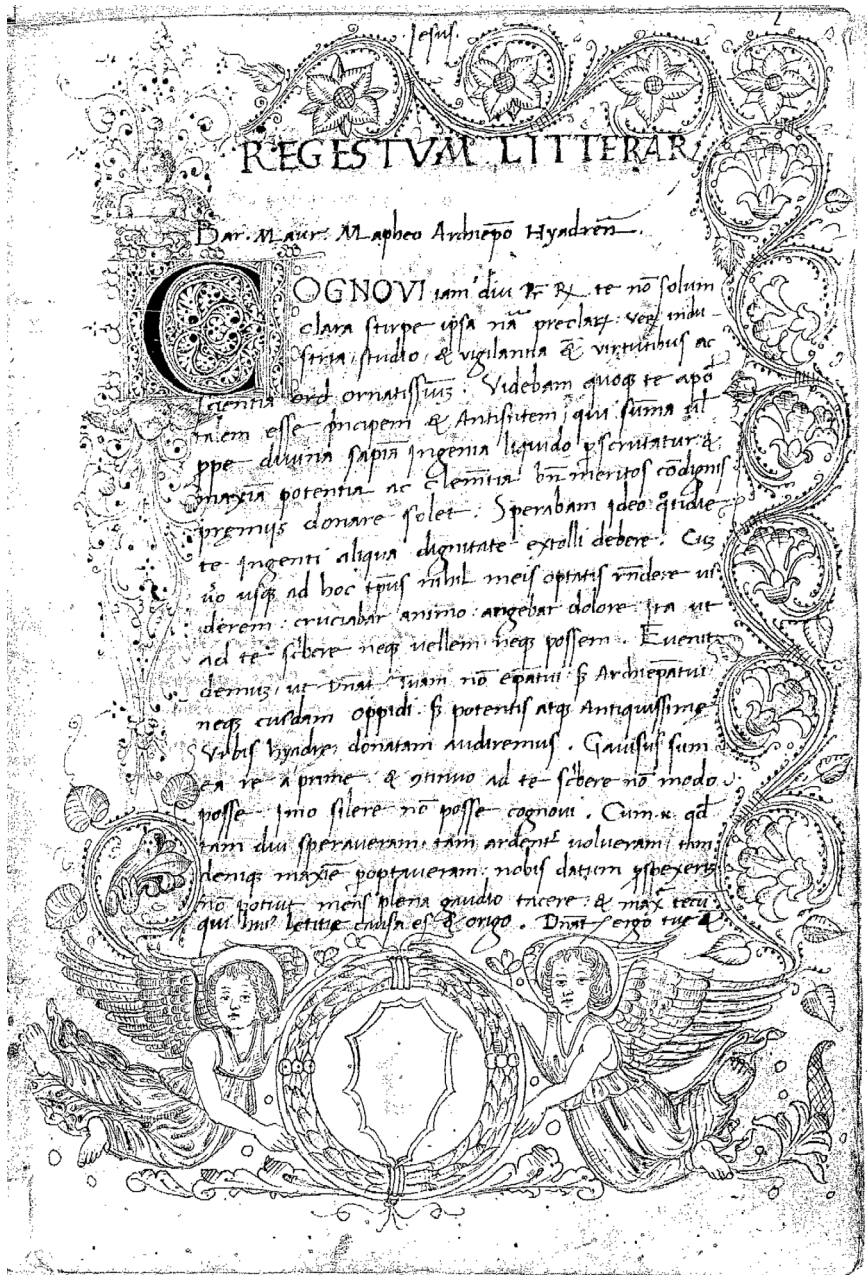 Jesus.
REGESTVM LITTERAR
Bar. Maur. Mapheo Archiep̄o Hyadren̄.
COGNOVI iam diu te nō solum
clara stirpe ipsa nā preclarꝫ: indu-
stria, studio, & vigilantia & virtutibus ac
scientia ornatissimuꝫ. Videbam quoqꝫ te apo
esse principem & Antistitem, qui sūma
divina sapiā ingenia liquido pscrutatur &
maxīa potentia ac clemētia bn̄ meritos cōdignis
premijs donare solet. Sperabam ideo qtidie
te ingenti aliqua dignitate extolli debere. Cuꝫ
v̄o usqꝫ ad hoc tp̄us nihil meis optatis rn̄dere vi
derem: cruciabar animo: angebar dolore: ita ut
ad te scbere neqꝫ vellem neqꝫ possem. Evenit
demuꝫ, ut Dn̄at Tuam nō ep̄atui: sꝫ Archiep̄atui
neqꝫ cuidam oppidi: sꝫ potentis atqꝫ Antiquissime
Urbis hyadre: donatam audiremus. Gavisus sum
ea re apprime: & ꝯtinuo ad te scbere nō modo
posse Imo silere nō posse cognovi. Cum qd̄
tam diu speraveram: tam ardentr̄ volueram:
deniqꝫ maxīe poptaveram: nobis datum
nō potuit mens plena gaudio tacere: & max̄ tecū
qui letitie causa es & origo. Dn̄at ergo tue &